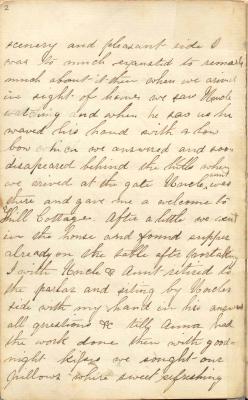 2
scenery and pleasant side I
was to much exausted to remark
much about it then when we arived
in sight of home we saw Uncle
watching and when he saw us he
waved his hand with a low
bow which we answered and soon
disapeared behind the hills when
we arived at the gate Uncle, aunt was
there and gave me a welcome to
Hill Cottage. After a little we went
in the house and found supper
already on the table after
I with Uncle & Aunt retired to
the parlor and siting by Uncles
side with my hand in his answered
all questions & till Anna had
the work done then with good-
night kisses we sought our
pillows where sweet refreshing